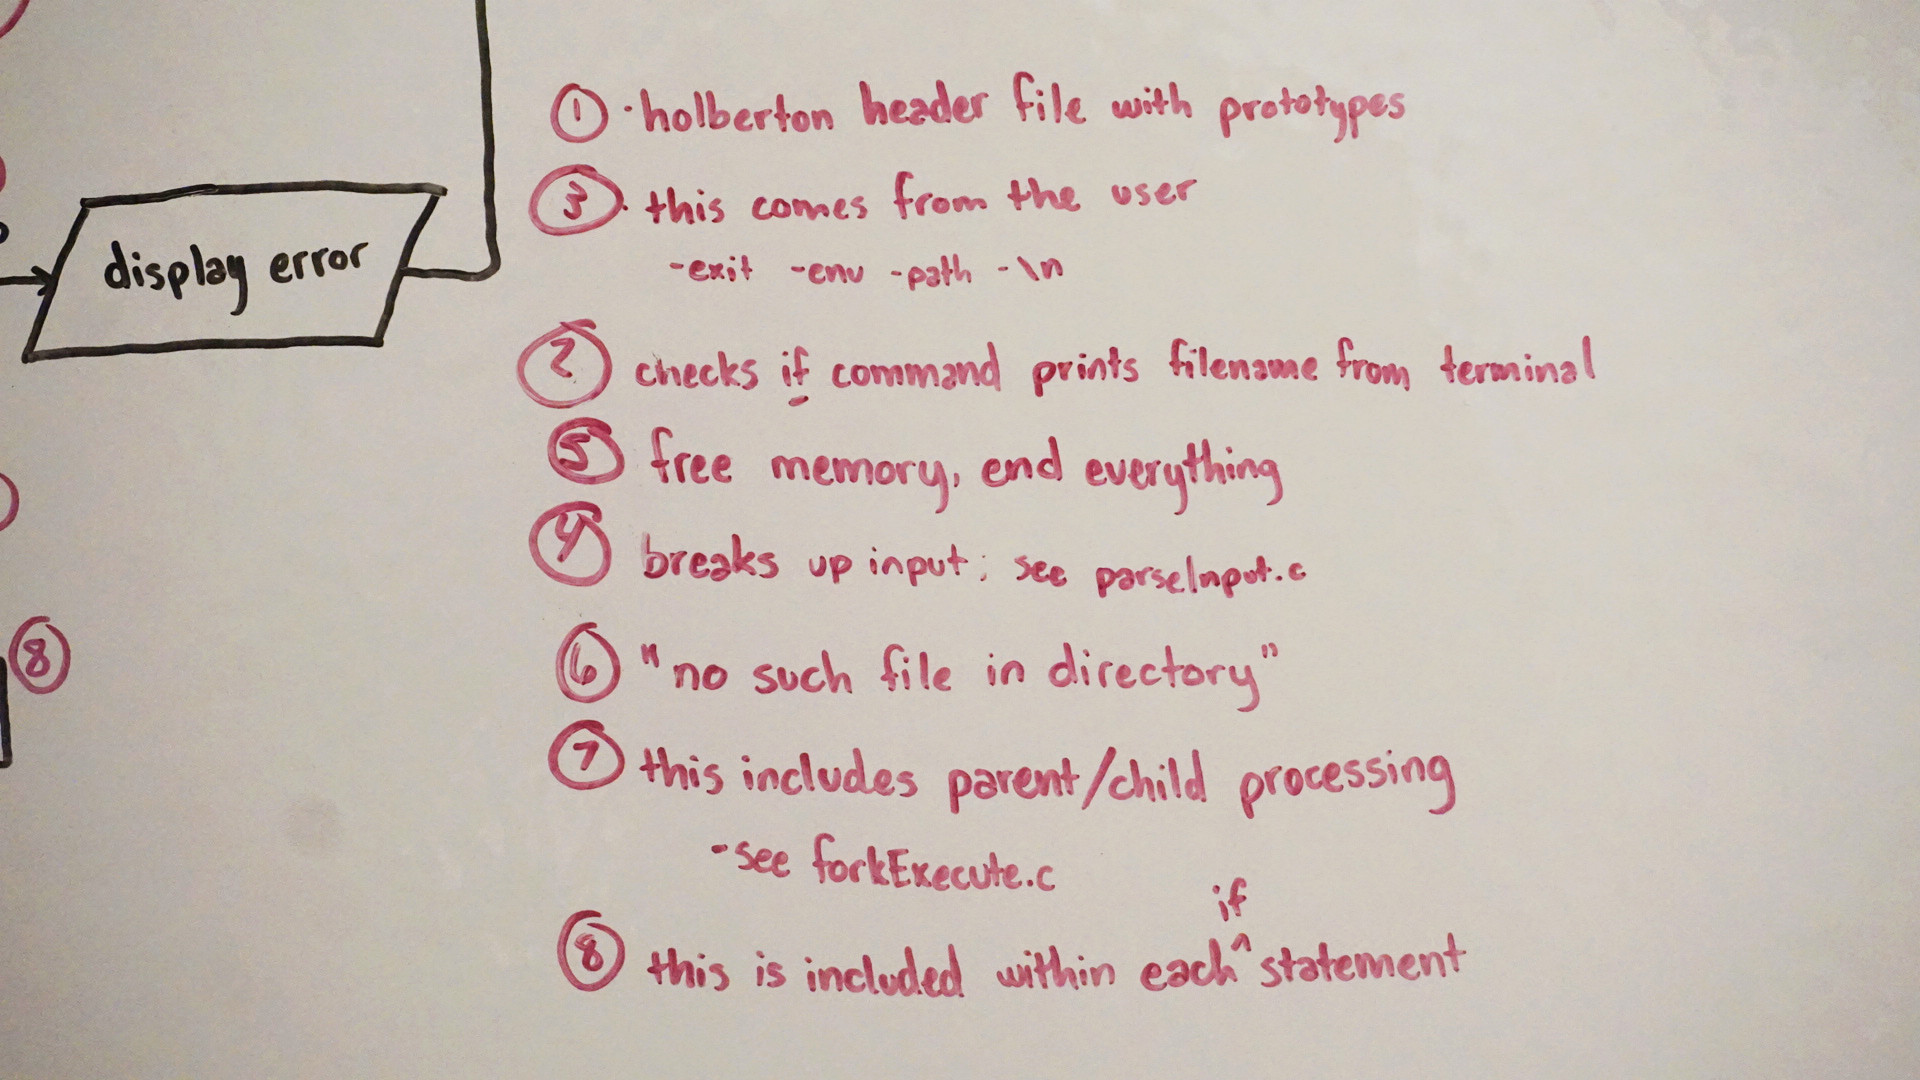 ① · holberton header file with prototypes
③ · this comes from the user
-exit -env -path -\n
display error
② checks if command prints filename from terminal
⑤ free memory, end everything
④ breaks up input; see parseInput.c
⑧
⑥ "no such file in directory"
⑦ this includes parent/child processing
-see forkExecute.c
if
⑧ this is included within each ^ statement